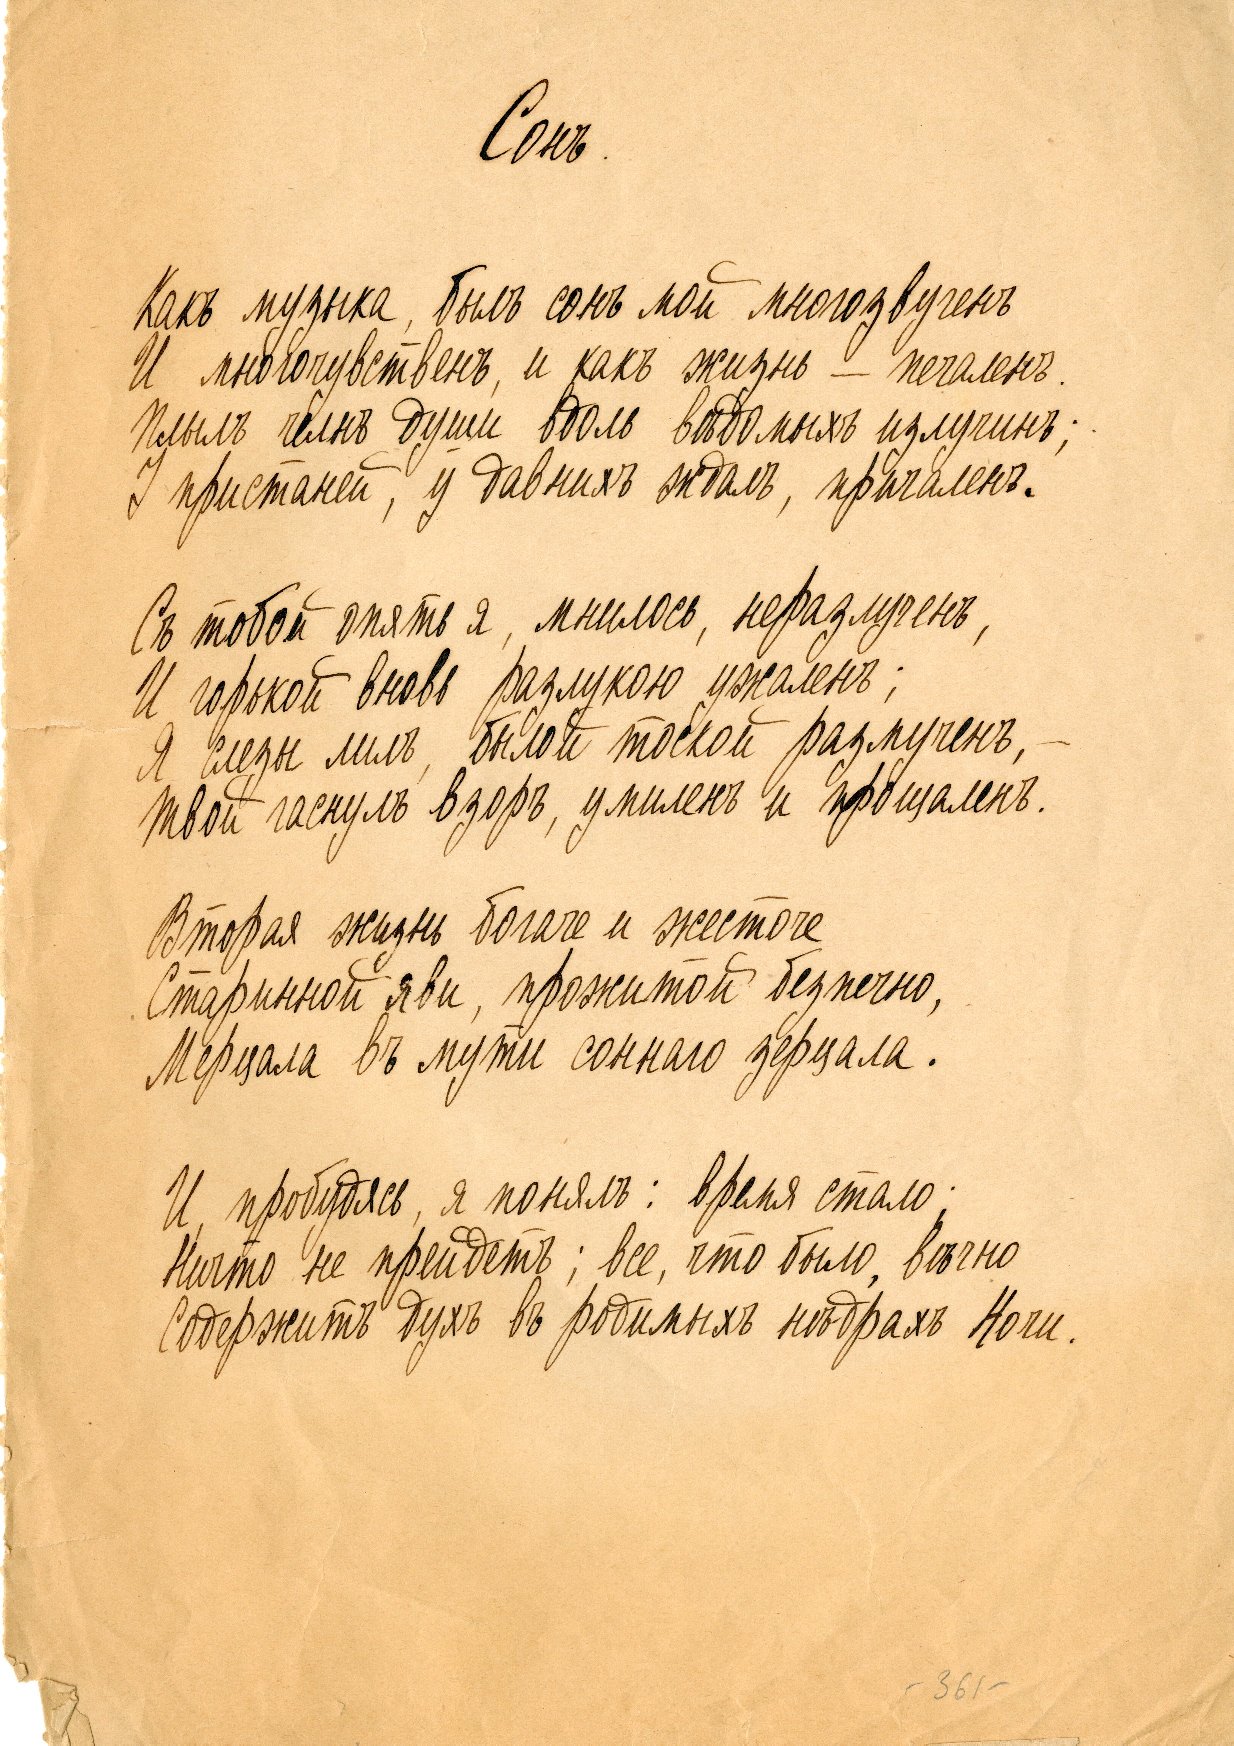 Сонъ.
Какъ музыка, былъ сонъ мой многозвученъ
И многочувственъ, и какъ жизнь — печаленъ.
Плылъ чёлнъ души вдоль вѣдомыхъ излучинъ;
У пристаней, у давнихъ ждалъ, причаленъ.
Съ тобой опять я, мнилось, неразлученъ,
И горькой вновь разлукою ужаленъ;
Я слезы лилъ, былой тоской размученъ, —
Твой гаснулъ взоръ, умиленъ и прощаленъ.
Вторая жизнь богаче и жесточе
Старинной яви, прожитой безпечно,
Мерцала въ мути соннаго зерцала.
И, пробудясь, я понялъ: время стало;
Ничто не прейдетъ; все, что было, вѣчно
Содержитъ духъ въ родимыхъ нѣдрахъ Ночи.
- 361 -